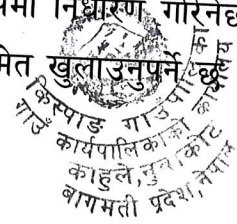 यमा निर्धारण गरिनेछ
मित खुलाउनुपर्ने छ
किस्पाङ गाउँपालिका
गाउँ कार्यपालिकाको कार्यालय
काहुले, नुवाकोट
बागमती प्रदेश, नेपाल